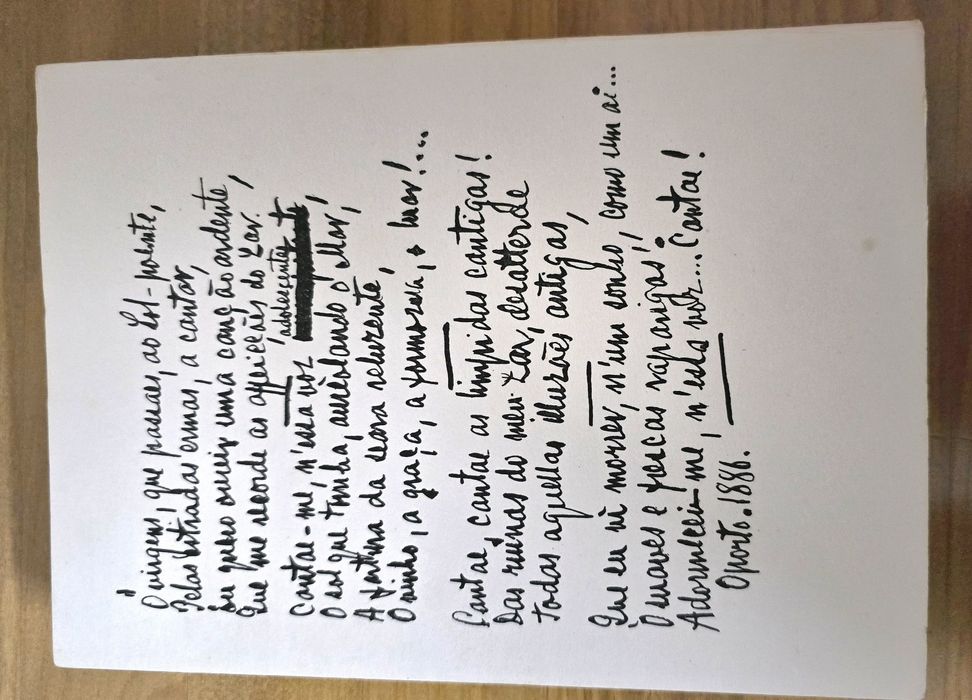 Ó virgens, que passaes, ao Sol-poente,
Pelas estradas ermas, a cantar,
Eu quero ouvir uma canção ardente,
Que me recorde as affeições do Lar.
Cantae-me, n'essa voz adolescente,
O sol que tomba, aureolando o Mar,
A fartura da seara reluzente,
O vinho, a graça, a formosura, o luar!...
Cantae, cantae as limpidas cantigas!
Das ruinas do meu Lar, desatterrae
Todas aquellas illusões antigas,
Que eu vi morrer, n'um sonho, como um ai...
Ó suaves e frescas raparigas,
Adormecei-me, n'essa voz... Cantae!
Oporto. 1886.